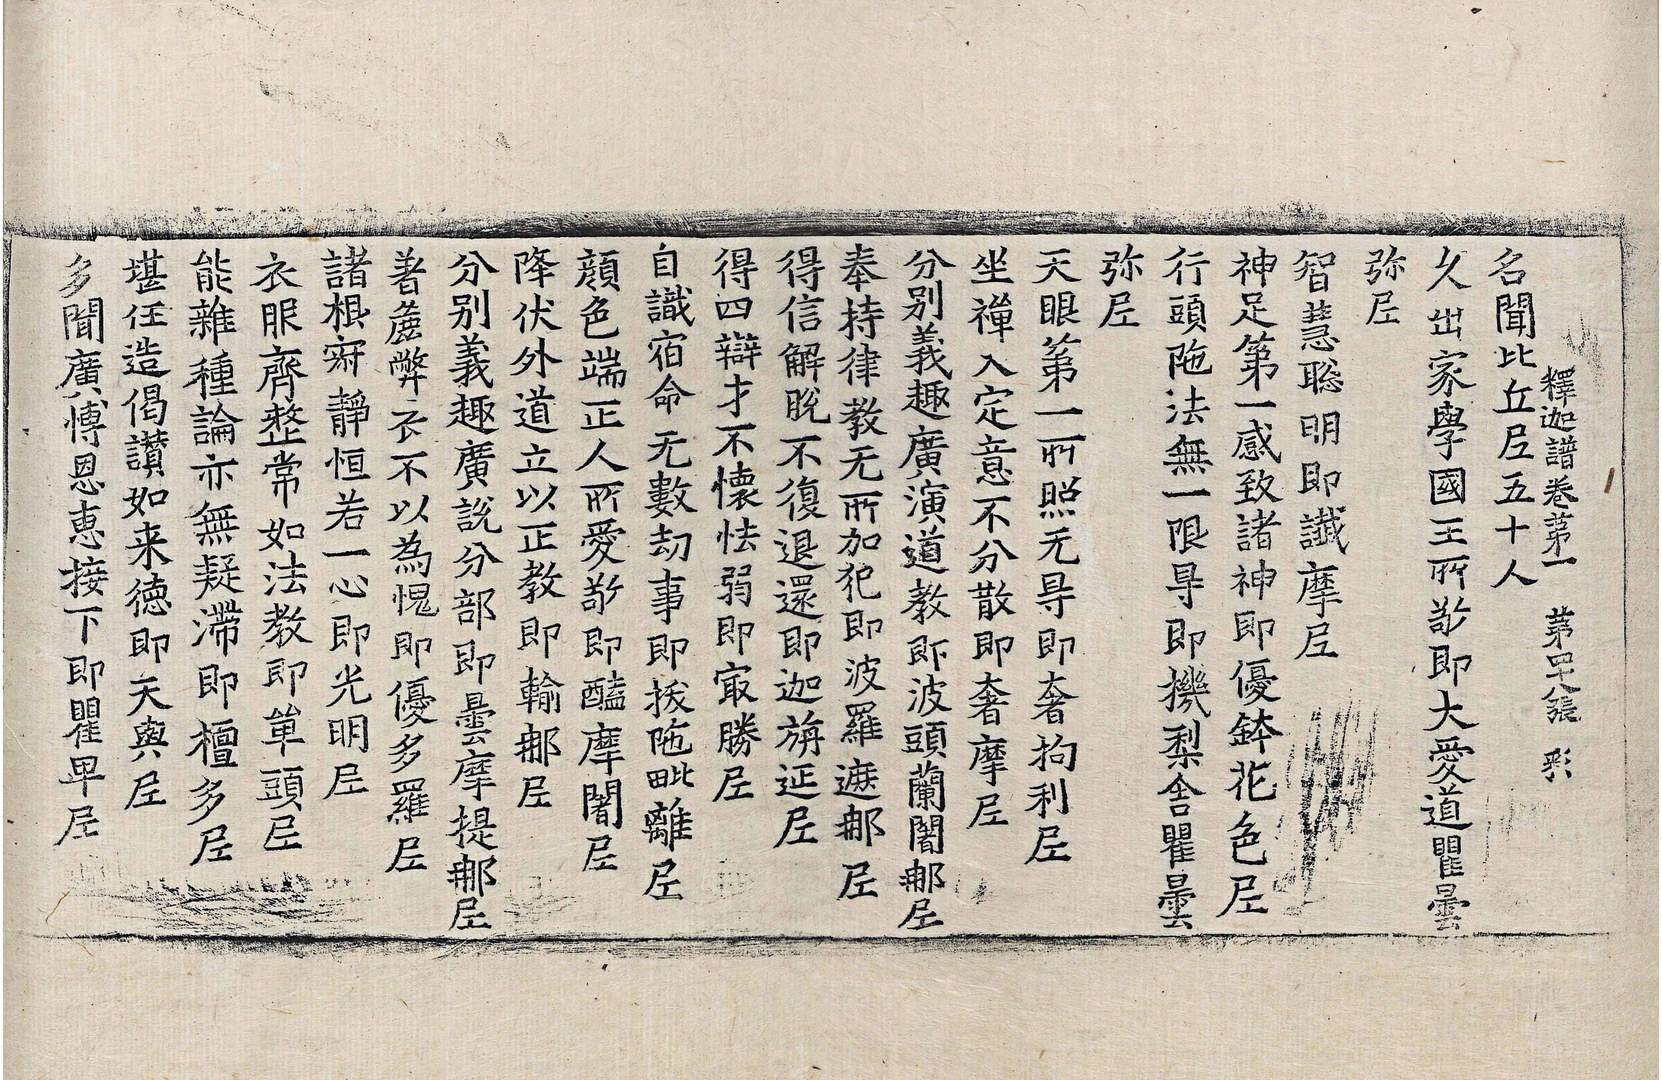 釋迦譜卷第一 第六張 彩
名聞比丘㞐五十人
久出家學國王所敬即大愛道瞿曇
弥㞐
智慧聡明即讖摩㞐
神足第一感致諸神即優鉢花色㞐
行頭陁法無一限㝵即機梨舍瞿曇
弥㞐
天眼第一所照无㝵即奢拘利㞐
坐禪入定意不分散即奢摩㞐
分別義趣廣演道教即波頭蘭闍那㞐
奉持律教无所加犯即波羅遮那㞐
得信解脫不復退還即迦旃延㞐
得四辯才不懐怯弱即㝡勝㞐
自識宿命无數劫事即拔陁毗離㞐
顔色端正人所愛敬即醯摩闍㞐
降伏外道立以正教即輸那㞐
分別義趣廣說分部即曇摩提那㞐
著麁弊衣不以為愧即優多羅㞐
諸根寂靜恒若一心即光明㞐
衣服齊整常如法教即單頭㞐
能雜種論亦無疑滯即檀多㞐
堪任造偈讃如来德即天與㞐
多聞廣博恩恵接下即瞿卑㞐